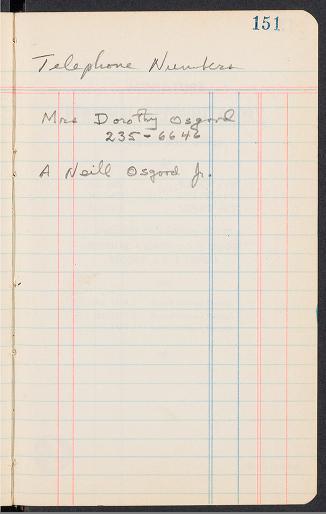 151
Telephone Numbers
Mrs Dorothy Osgood
235-6646
A Neill Osgood Jr.